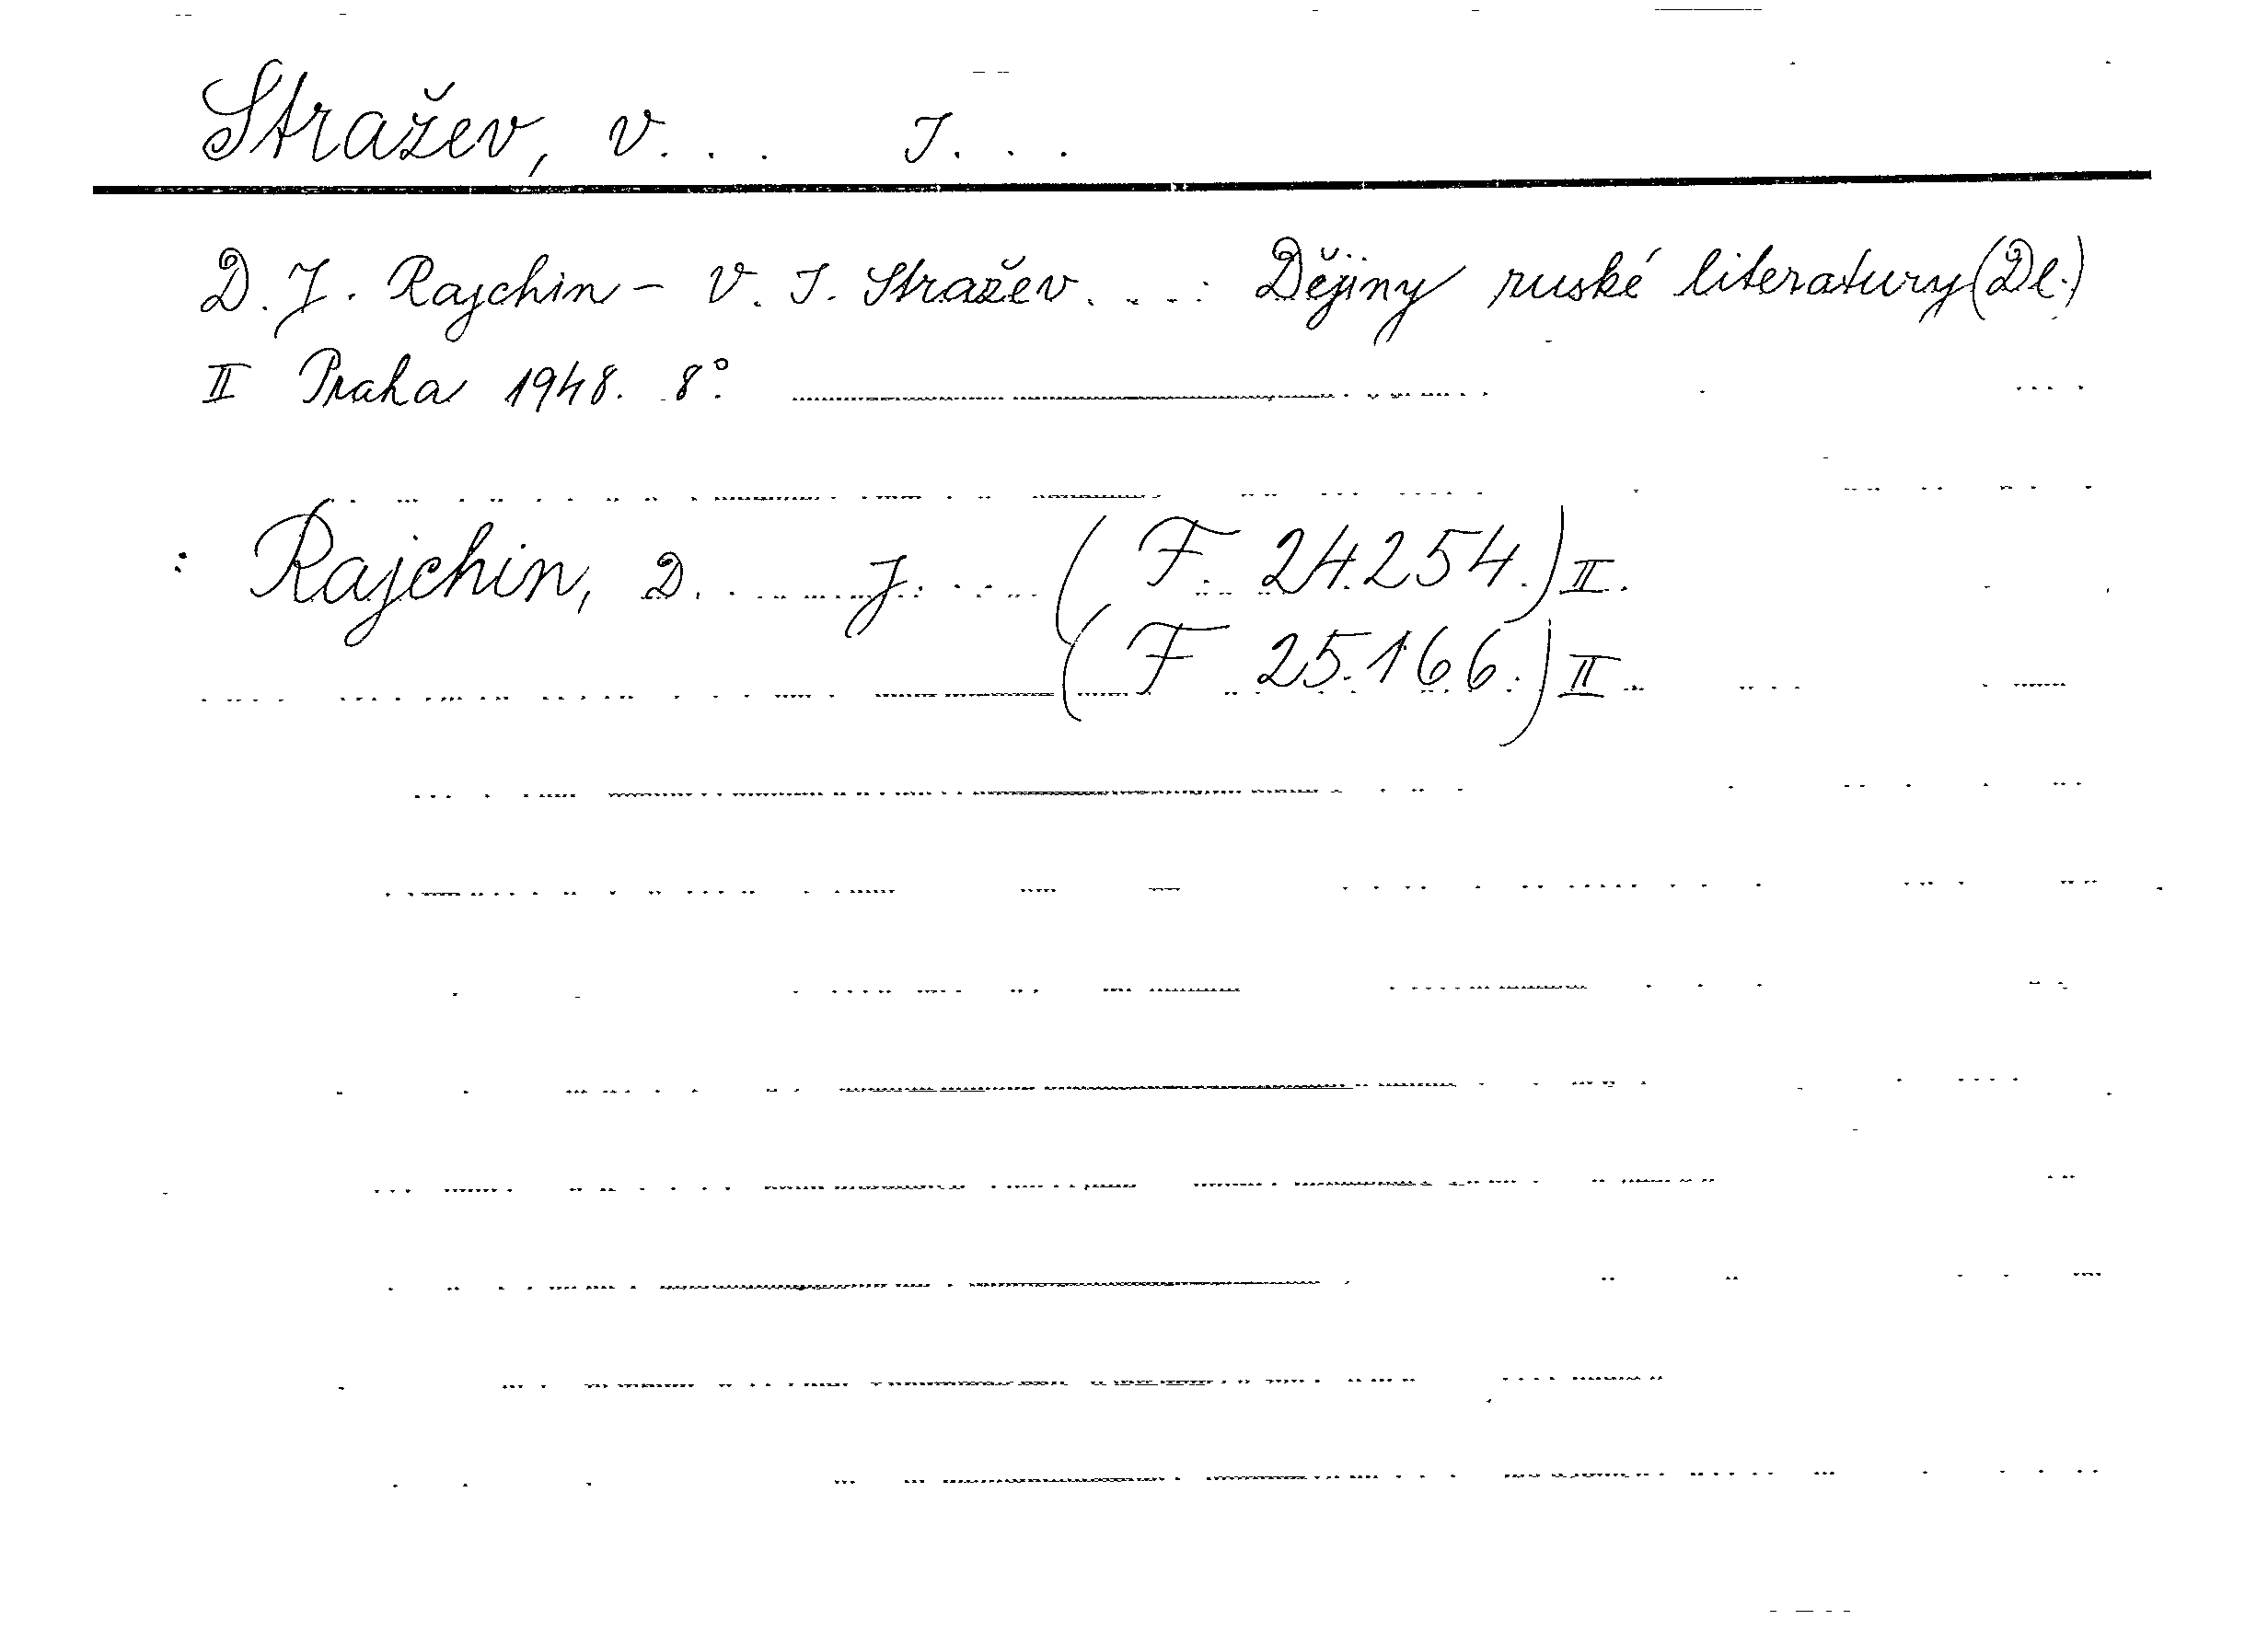 Stražev, V... I...
D. J. Rajchin – V. I. Stražev...: Dějiny ruské literatury (Dl.)
II Praha 1948. 8°.
: Rajchin, D. J. (F. 24.254.) II.
(F 25.166.) II